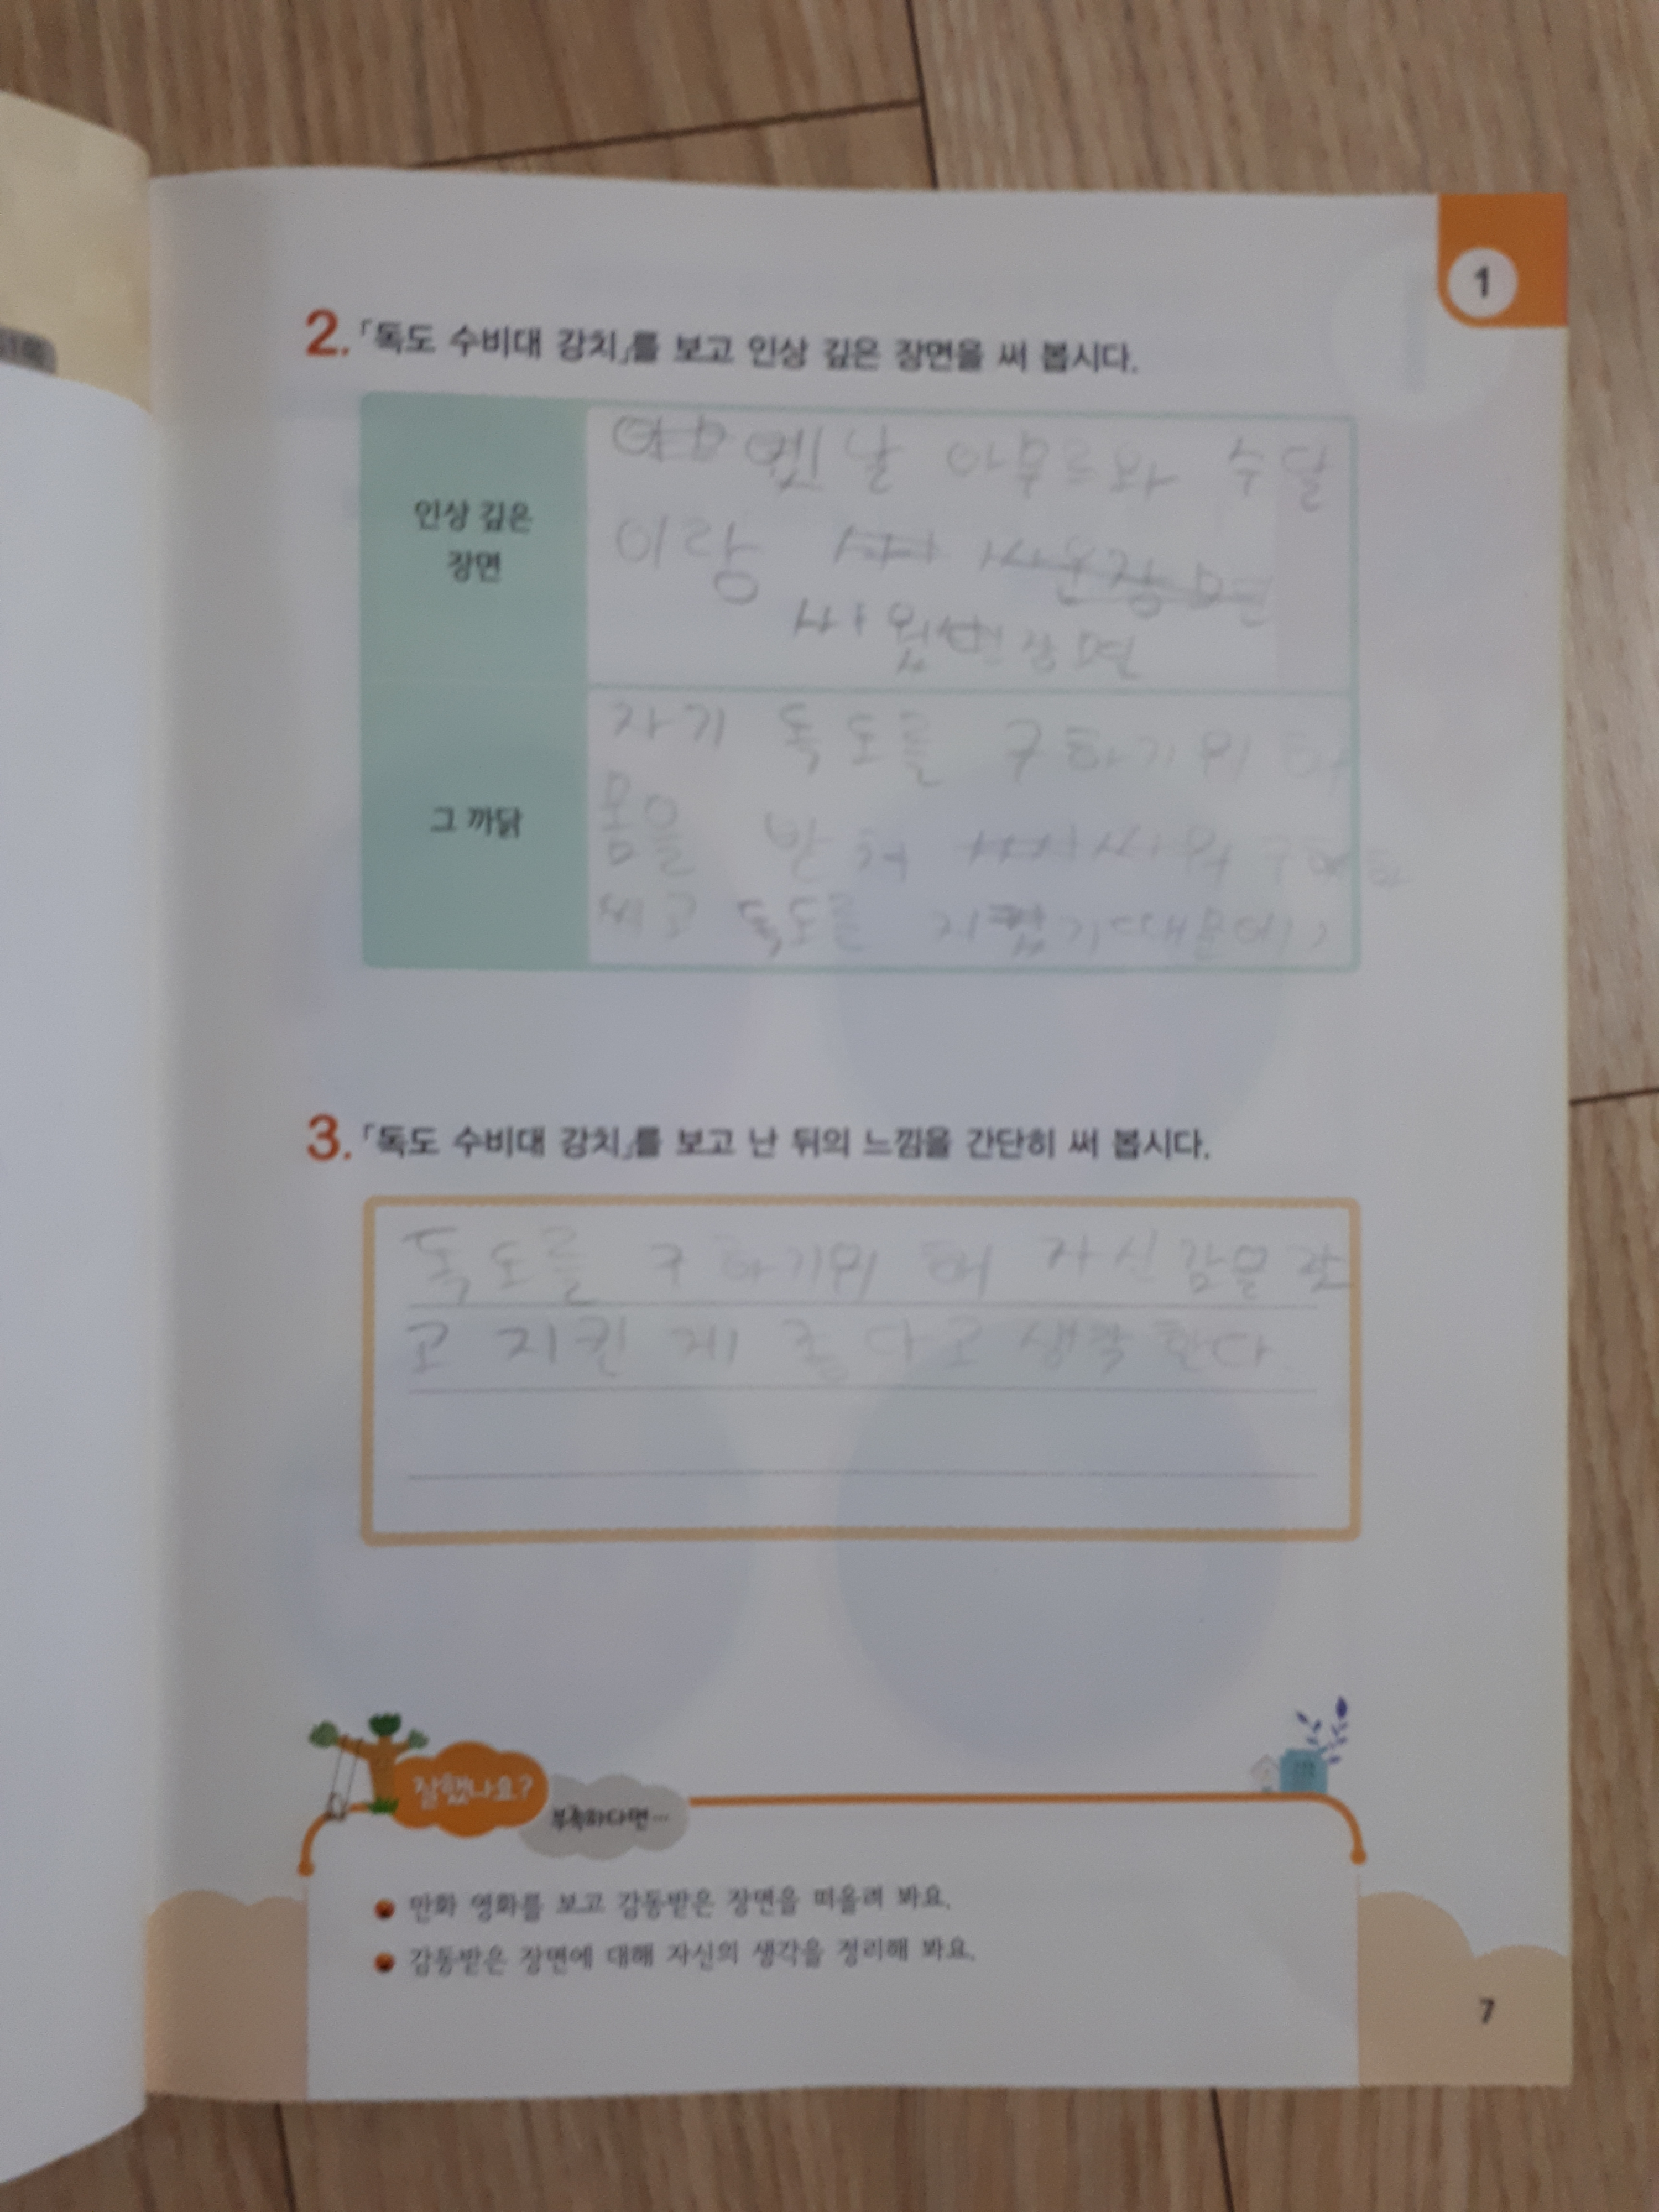 1
2. 「독도 수비대 강치」를 보고 인상 깊은 장면을 써 봅시다.
인상 깊은
장면
옛날 아무르와 수달
이랑
싸웠던 장면
그 까닭
자기 독도를 구하기위해
몸을 받쳐 싸워
독도를 지켰기때문에
3. 「독도 수비대 강치」를 보고 난 뒤의 느낌을 간단히 써 봅시다.
독도를 구하기위해 자신감을 갖
고 지킨 게 좋다고 생각한다.
잘했나요?
부족하다면…
만화 영화를 보고 감동받은 장면을 떠올려 봐요.
감동받은 장면에 대해 자신의 생각을 정리해 봐요.
7